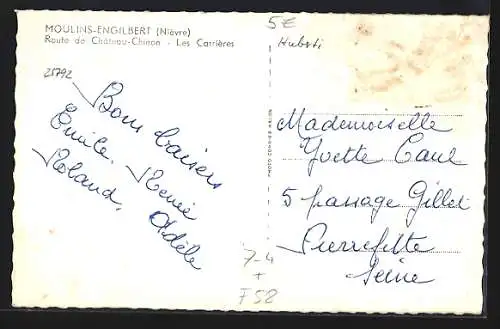 MOULINS-ENGILBERT (Nièvre)
Route de Château-Chinon - Les Carrières
5€
25792
Bons baisers
Emile, Renée
Roland, Adèle
Mademoiselle
Yvette Caul
5 passage Gillet
Pierrefitte
Seine
7-4
+
F58